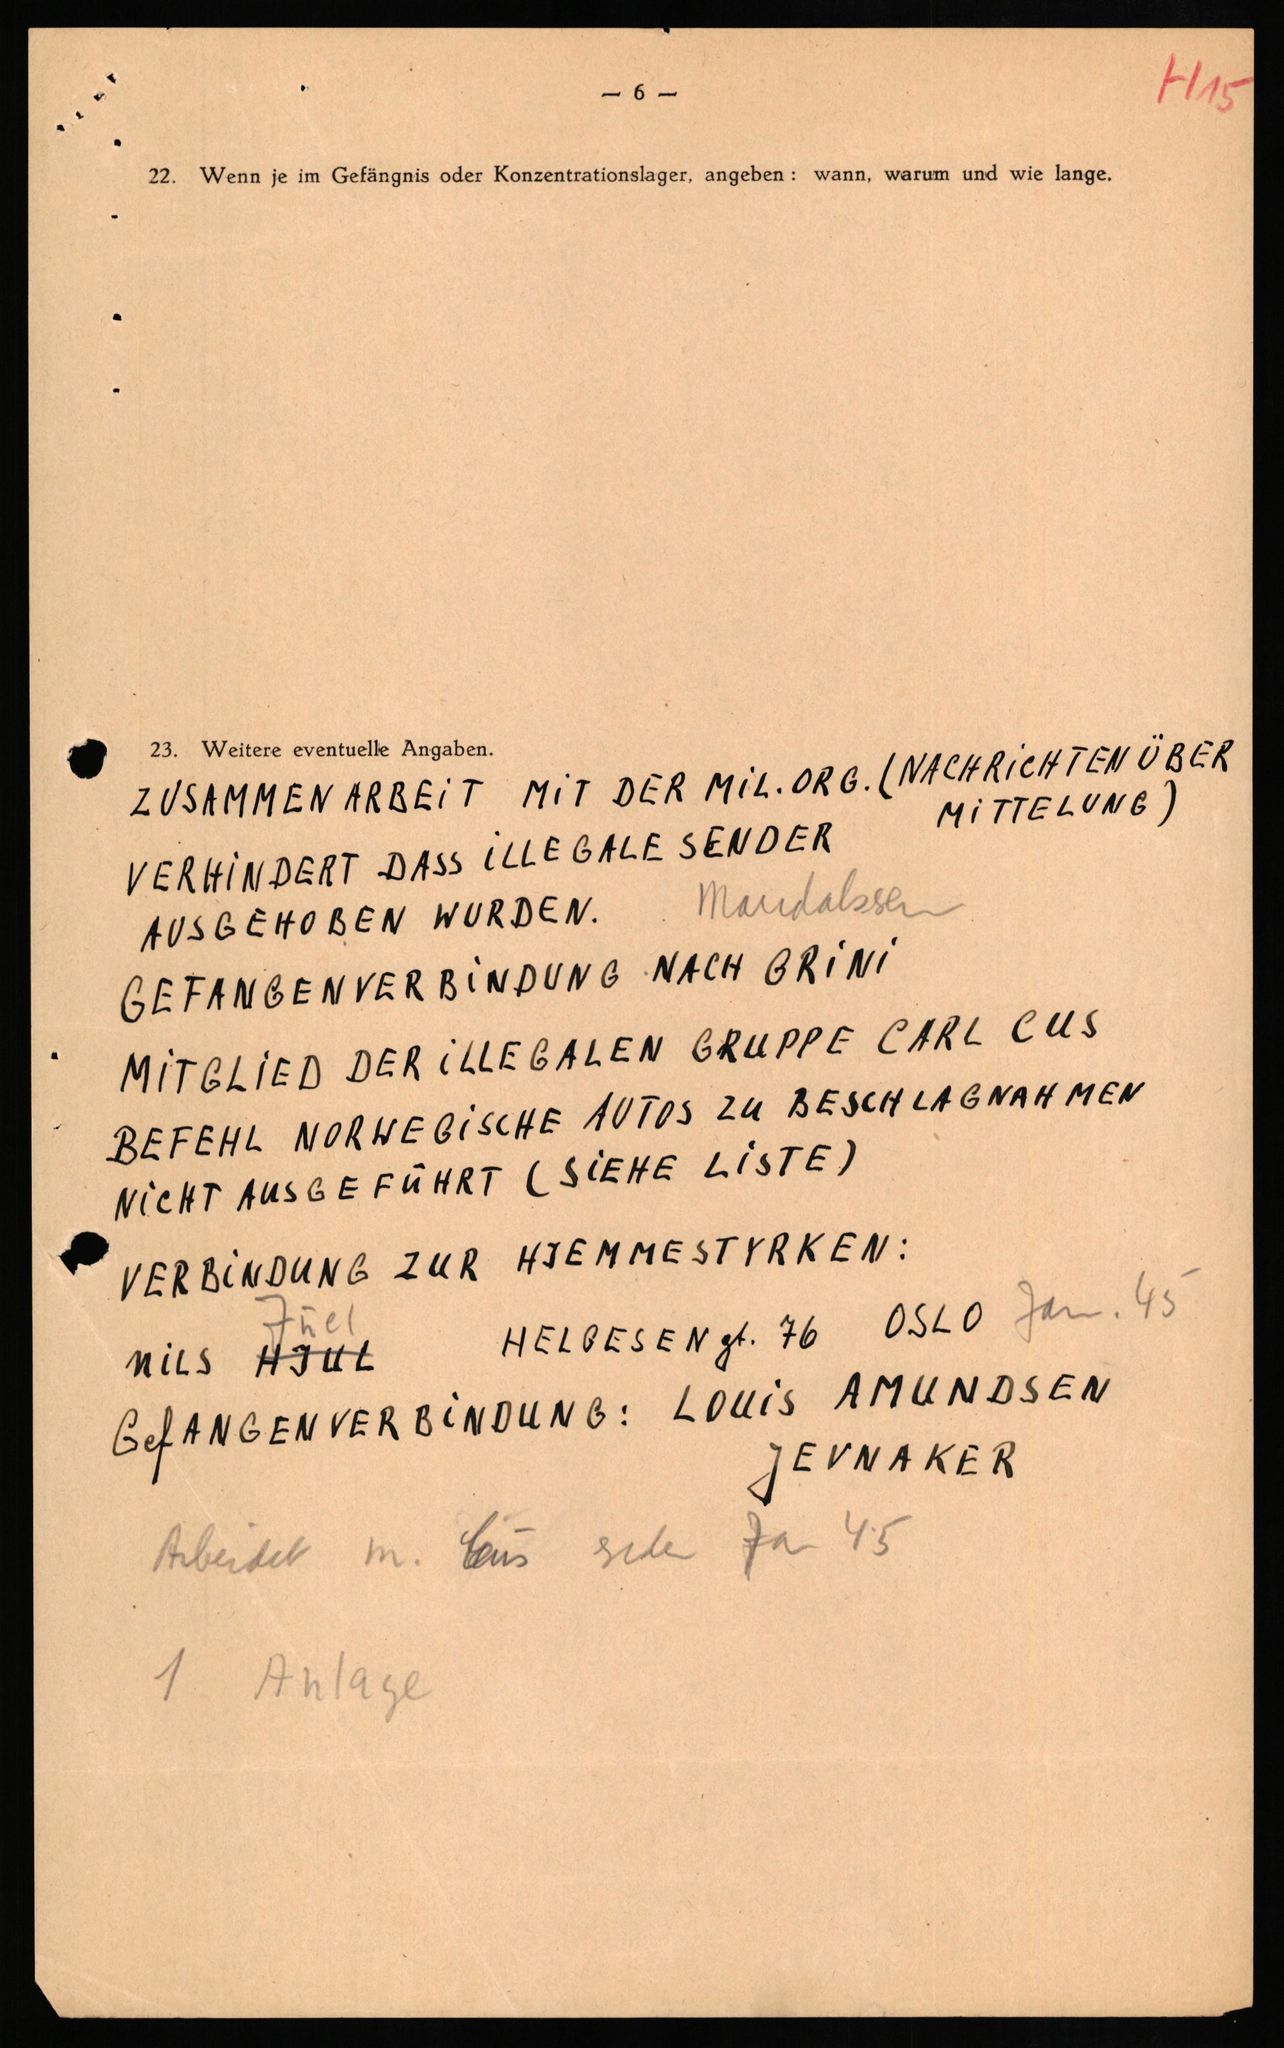 — 6 —
H15
22. Wenn je im Gefängnis oder Konzentrationslager, angeben: wann, warum und wie lange.
23. Weitere eventuelle Angaben.
ZUSAMMENARBEIT MIT DER MIL. ORG. (NACHRICHTENÜBER
MITTELUNG)
VERHINDERT DASS ILLEGALE SENDER
AUSGEHOBEN WURDEN.
GEFANGENVERBINDUNG NACH GRINI
MITGLIED DER ILLEGALEN GRUPPE CARL CUS
BEFEHL NORWEGISCHE AUTOS ZU BESCHLAGNAHMEN
NICHT AUSGEFÜHRT (SIEHE LISTE)
VERBINDUNG ZUR HJEMMESTYRKEN:
Jüel
NILS HJUL HELGESEN gt. 76 OSLO Jan. 45
GefANGENVERBINDUNG: LOUIS AMUNDSEN
JEVNAKER
Arbeidet m. Cus siden Jan 45
1 Anlage